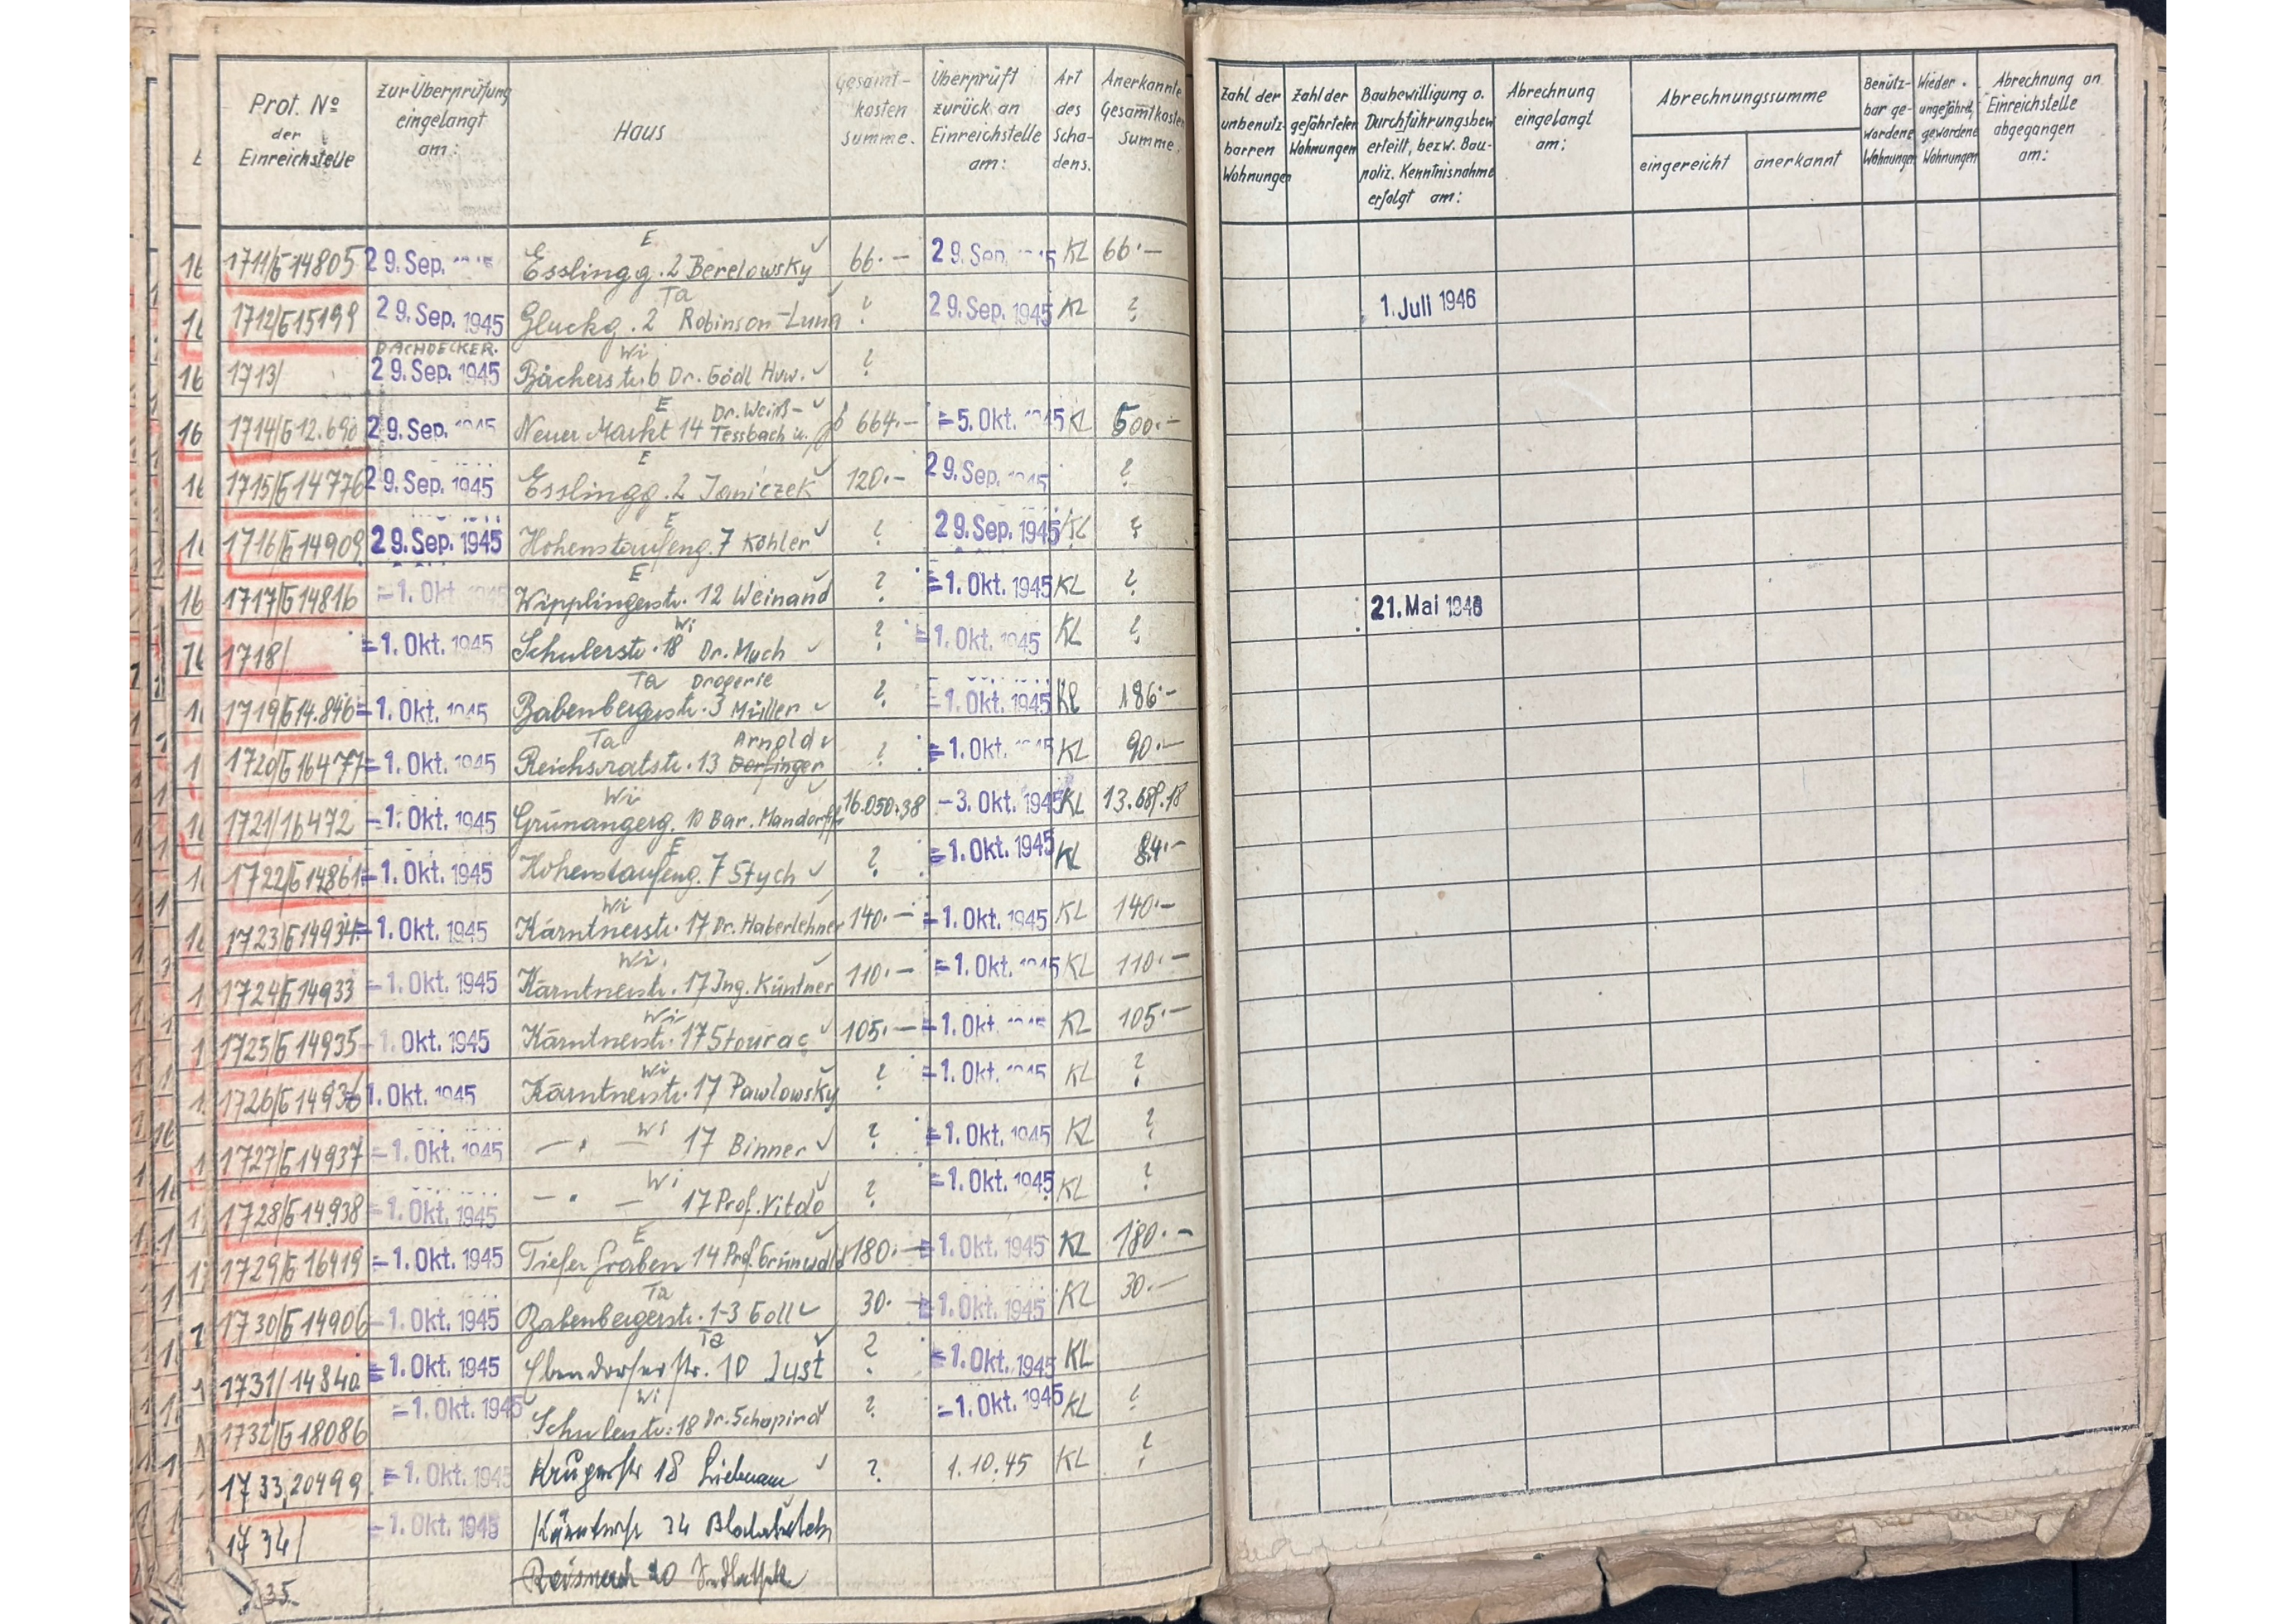 Prot. No der Einreichstelle | zur Überprüfung eingelangt am: | Haus | Gesamtkosten Summe. | Überprüft zurück an Einreichstelle am: | Art des Schadens. | Anerkannte Gesamtkosten Summe. | Zahl der unbenutzbarren Wohnungen | Zahl der gefährteten Wohnungen | Baubewilligung o. Durchführungsbew erteilt, bezw. Baupoliz. Kenntnisnahme erfolgt am: | Abrechnung eingelangt am: | Abrechnungssumme eingereicht | anerkannt | Benützbar gewordene Wohnungen | Wieder ungefährd. gewordene Wohnungen | Abrechnung an Einreichstelle abgegangen am:
1711/G14805 29. Sep. Esslingg. 2 Berelowsky E 66.- 29. Sep. KL 66.-
1712/G15199 29. Sep. 1945 Gluckg. 2 Robinson-Luna Ta ? 29. Sep. 1945 KL ? 1. Juli 1946
DACHDECKER.
1713/ 29. Sep. 1945 Bäckerstr. 6 Dr. Gödl Huw. Wi ?
1714/G12.690 29. Sep. 1945 Neuer Markt 14 Dr. Weiß-Tessbach u. E 664.- 5. Okt. 1945 KL 500.-
1715/G14776 29. Sep. 1945 Esslingg. 2 Janiczek E 120.- 29. Sep. 1945 ?
1716/G14909 29. Sep. 1945 Hohenstaufeng. 7 Köhler E ? 29. Sep. 1945 KL ?
1717/G14816 1. Okt. 1945 Wipplingerstr. 12 Weinand E ? 1. Okt. 1945 KL ? 21. Mai 1946
1718/ 1. Okt. 1945 Schulerstr. 18 Dr. Much Wi ? 1. Okt. 1945 KL ?
1719/G14.846 1. Okt. 1945 Babenbergerstr. 3 Drogerie Müller Ta ? 1. Okt. 1945 KL 186.-
1720/G16477 1. Okt. 1945 Reichsratstr. 13 Arnold Dorfinger Ta ? 1. Okt. 1945 KL 90.-
1721/16472 1. Okt. 1945 Grünangerg. 10 Bar. Mandorff Wi 16.050.38 3. Okt. 1945 KL
1722/G14861 1. Okt. 1945 Hohenstaufeng. 7 Stych E ? 1. Okt. 1945 KL 84.-
1723/G14934 1. Okt. 1945 Kärntnerstr. 17 Dr. Haberlehner Wi 140.- 1. Okt. 1945 KL 140.-
1724/G14933 1. Okt. 1945 Kärntnerstr. 17 Ing. Küntner Wi. 110.- 1. Okt. 1945 KL 110.-
1725/G14935 1. Okt. 1945 Kärntnerstr. 17 Stourac Wi 105.- 1. Okt. KL 105.-
1726/G14936 1. Okt. 1945 Kärntnerstr. 17 Pawlowsky Wi ? 1. Okt. 1945 KL ?
1727/G14937 1. Okt. 1945 — " — 17 Binner Wi ? 1. Okt. 1945 KL ?
1728/G14938 1. Okt. 1945 — " — 17 Prof. Vitdo Wi ? 1. Okt. 1945 KL ?
1729/G16419 1. Okt. 1945 Tiefer Graben 14 Prof. Grünwald E 180.- 1. Okt. 1945 KL 180.-
1730/G14906 1. Okt. 1945 Babenbergerstr. 1-3 Goll Ta 30.- 1. Okt. 1945 KL 30.-
1731/14840 1. Okt. 1945 Ebendorferstr. 10 Just Ta ? 1. Okt. 1945 KL
1732/G18086 1. Okt. 1945 Schulerstr. 18 Dr. Schapira Wi ? 1. Okt. 1945 KL ?
1733,20499 1. Okt. 1945 Krugerstr 18 ? 1.10.45 KL ?
1734/ 1. Okt. 1945 Kärntnerstr 34
35.